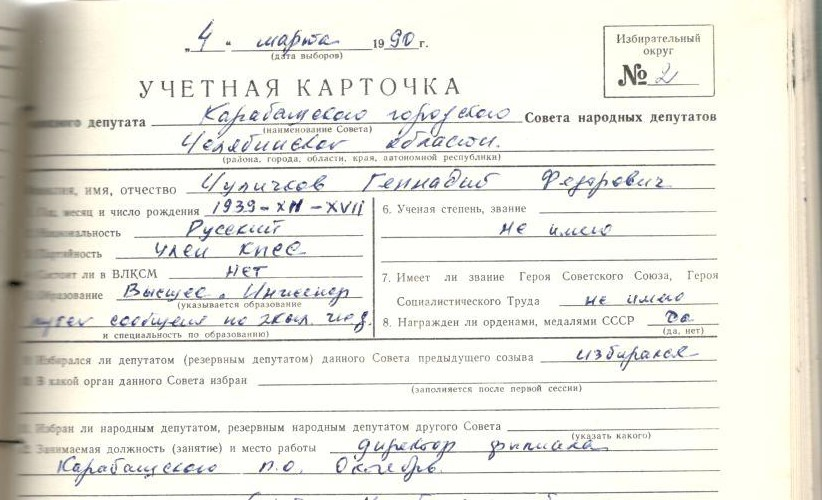 „4" марта 1990 г.
(дата выборов)
Избирательный
округ
№ 2
УЧЕТНАЯ КАРТОЧКА
депутата Карабашского городского Совета народных депутатов
(наименование Совета)
Челябинской области.
(района, города, области, края, автономной республики)
имя, отчество Чуличков Геннадий Федорович
месяц и число рождения 1939-XII-XVII
Национальность Русский
Партийность член КПСС
Состоит ли в ВЛКСМ НЕТ
Образование Высшее. Инженер
(указывается образование
путей сообщения по
и специальность по образованию)
6. Ученая степень, звание
не имею
7. Имеет ли звание Героя Советского Союза, Героя
Социалистического Труда не имею
8. Награжден ли орденами, медалями СССР да
(да, нет)
Избирался ли депутатом (резервным депутатом) данного Совета предыдущего созыва избирался
В какой орган данного Совета избран
(заполняется после первой сессии)
Избран ли народным депутатом, резервным народным депутатом другого Совета
(указать какого)
Занимаемая должность (занятие) и место работы директор филиала
Карабашского п.о. Октябрь.